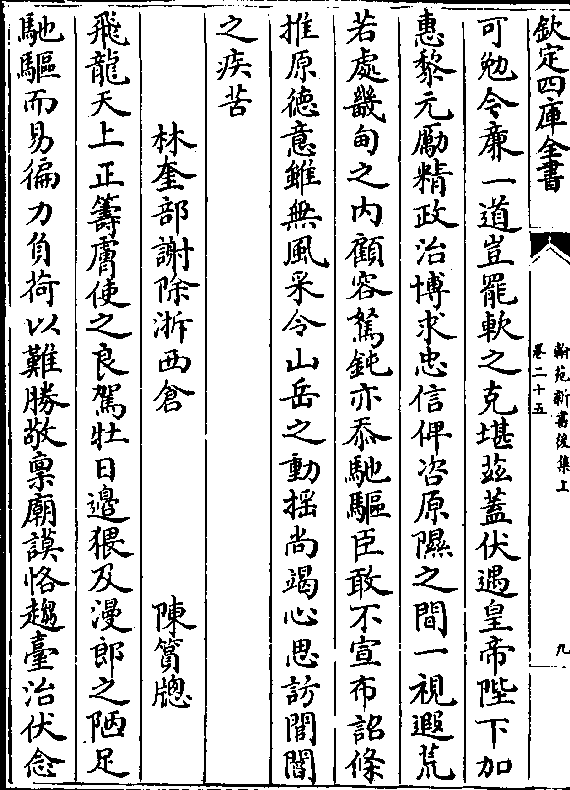 欽定四庫全書
翰苑新書後集上
卷二十五
九
可勉令廉一道豈罷軟之克堪兹蓋伏遇皇帝陛下加
惠黎元勵精政治博求忠信俾咨原隰之間一視遐荒
若處畿甸之内顧容駑鈍亦忝馳驅臣敢不宣布詔條
推原德意雖無風采令山岳之動揺尚竭心思訪閭閻
之疾苦
林奎部謝除浙西倉
陳篔牕
飛龍天上正籌膚使之良駕牡日邊猥及漫郎之陋足
馳驅而易徧力負荷以難勝敬禀廟謨恪趨臺治伏念